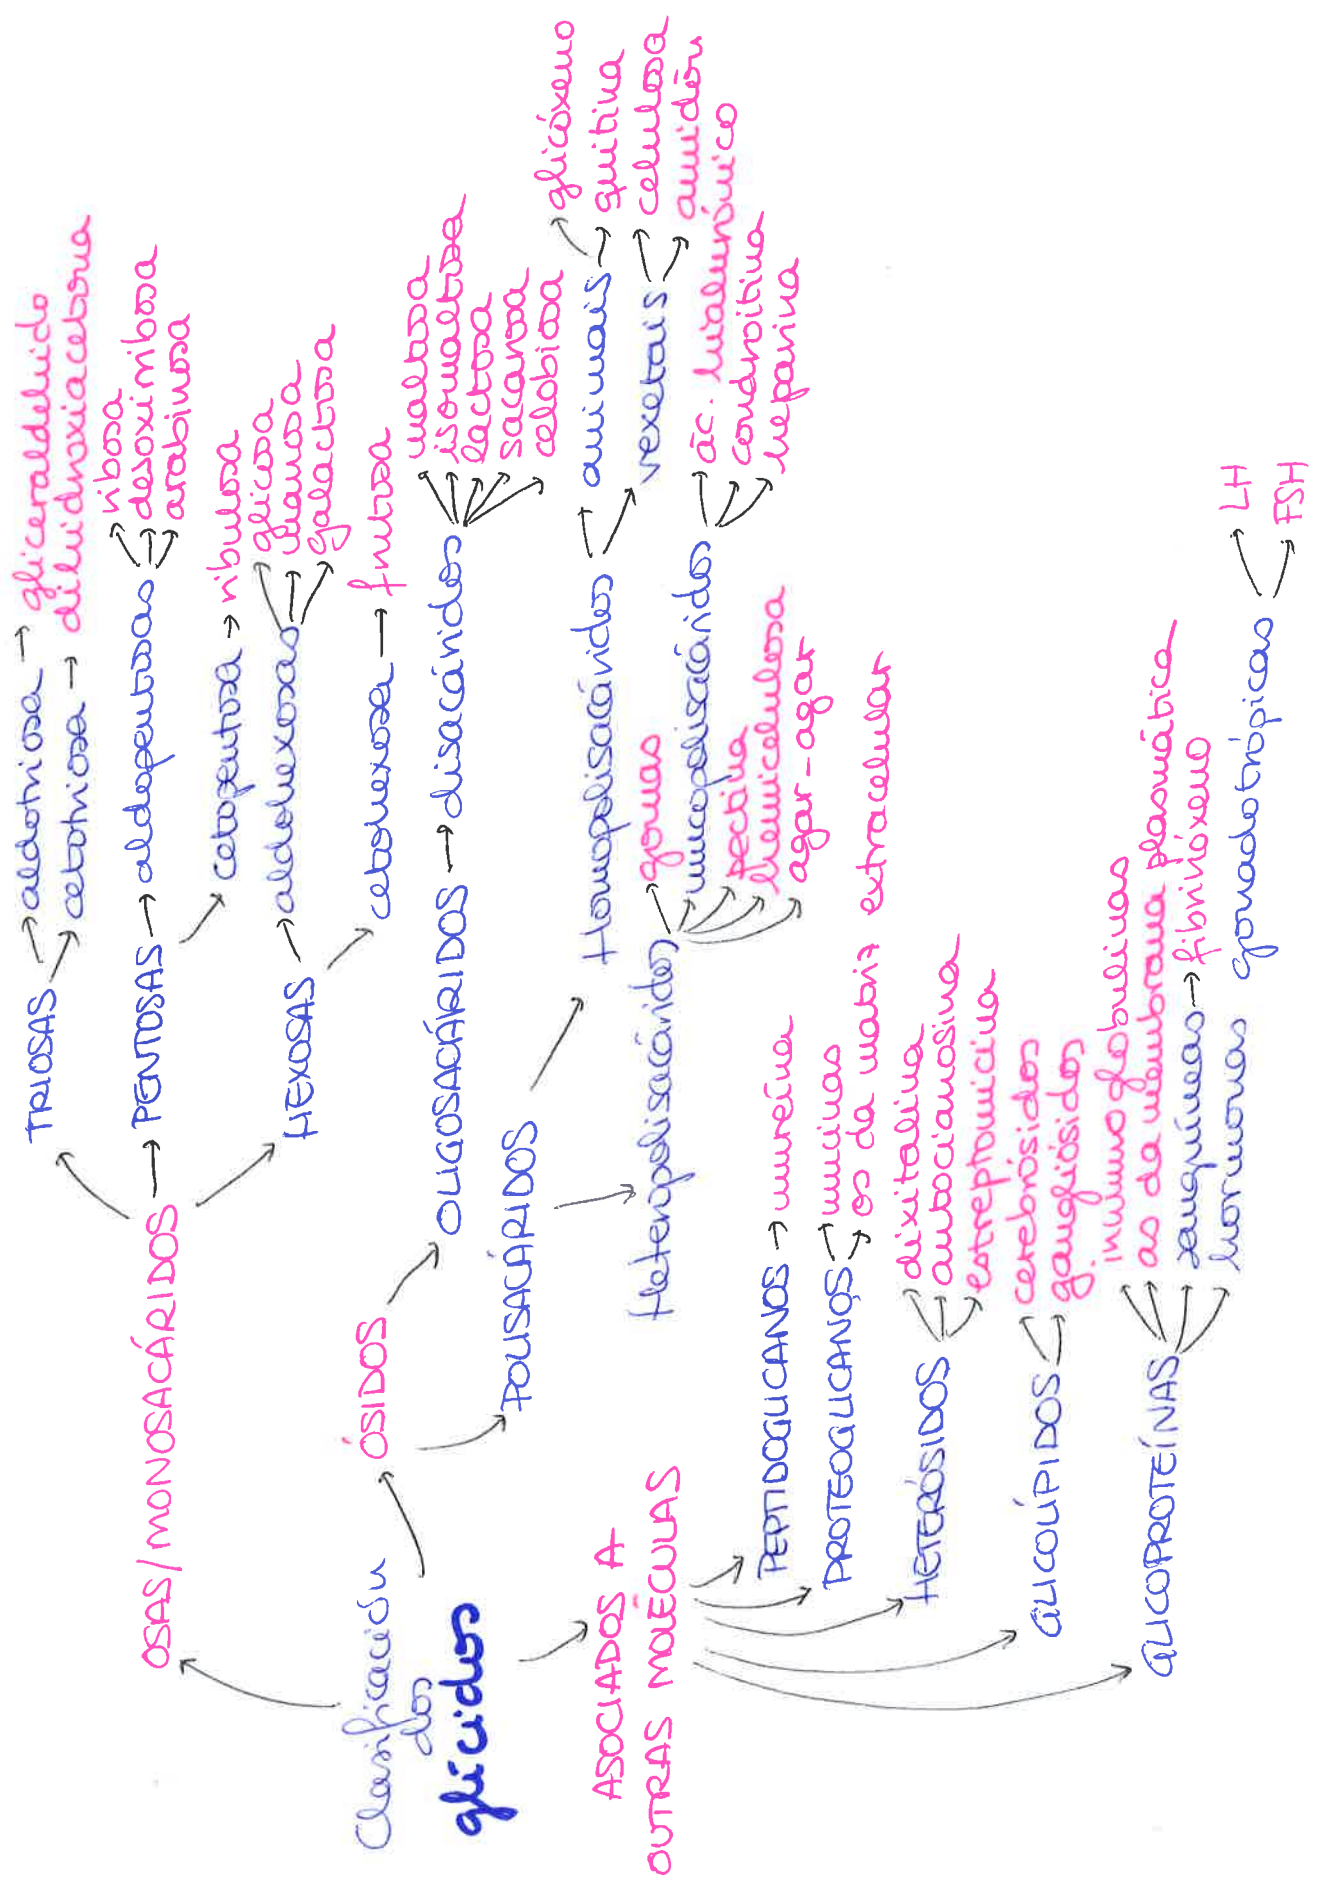 Clasificación
dos
glícidos
OSAS/MONOSACÁRIDOS
TRIOSAS
aldotriosa
gliceraldehido
cetotriosa
dihidroxiacetona
PENTOSAS
aldopentosas
ribosa
desoxirribosa
arabinosa
cetopentosa
ribulosa
HEXOSAS
aldohexosas
glicosa
manosa
galactosa
cetohexosa
frutosa
ÓSIDOS
OLIGOSACÁRIDOS
disacáridos
maltosa
isomaltosa
lactosa
sacarosa
celobiosa
POLISACÁRIDOS
Homopolisacáridos
animais
glicóxeno
quitina
vexetais
celulosa
amidón
Heteropolisacáridos
gomas
mucopolisacáridos
ác. hialurónico
condroitina
heparina
pectina
hemicelulosa
agar-agar
ASOCIADOS A
OUTRAS MOLÉCULAS
PEPTIDOGLICANOS
mureína
PROTEOGLICANOS
mucinas
os da matriz extracelular
HETERÓSIDOS
dixitalina
antocianosina
estreptomicina
GLICOLÍPIDOS
cerebrósidos
gangliósidos
GLICOPROTEÍNAS
inmunoglobulinas
as da membrana plasmática
sanguíneas
fibrinóxeno
hormonas gonadotrópicas
LH
FSH